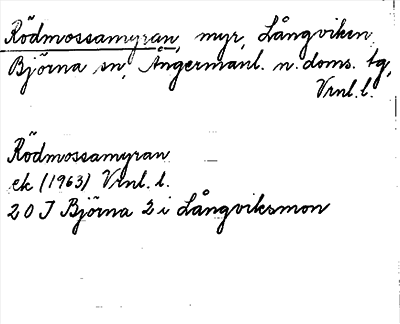 Rödmossamyran, myr, Långviken
Björna sn, Ångermanl. n. doms. tg,
Vrnl. l.
Rödmossamyran
ek (1963) Vrnl. l.
20 J Björna 2 i Långviksmon